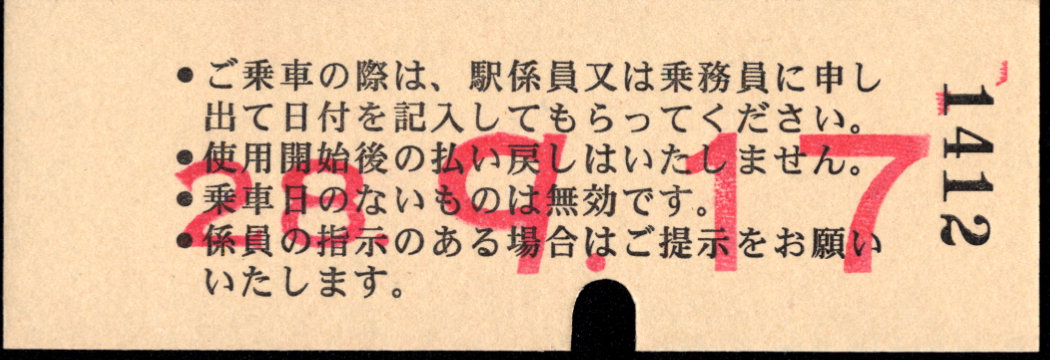 ●ご乗車の際は、駅係員又は乗務員に申し
出て日付を記入してもらってください。
●使用開始後の払い戻しはいたしません。
●乗車日のないものは無効です。
●係員の指示のある場合はご提示をお願い
いたします。
28. 9.17
1412